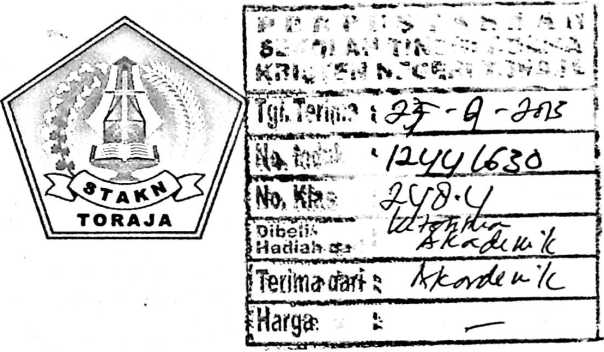 STAKN
TORAJA
PERPUSTAKAAN
SEKOLAH TINGGI AGAMA
KRISTEN NEGERI TORAJA
Tgl. Terima : 25 - 9 - 2013
No. Induk : 12441630
No. Klas : 248.4
Dibeli
Hadiah dari Akademik
Terima dari : Akademik
Harga : —